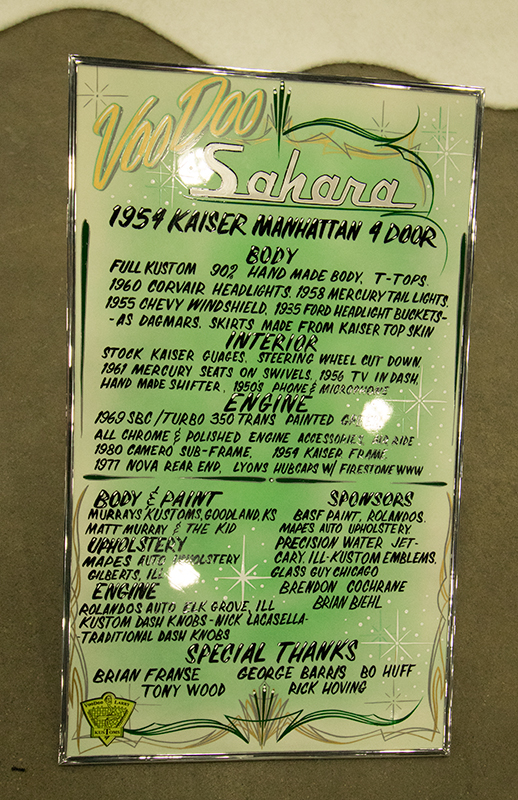 VooDoo
Sahara
1954 KAISER MANHATTAN 4 DOOR
BODY
FULL KUSTOM 90% HAND MADE BODY, T-TOPS.
1960 CORVAIR HEADLIGHTS, 1958 MERCURY TAIL LIGHTS,
1955 CHEVY WINDSHIELD, 1935 FORD HEADLIGHT BUCKETS-
-AS DAGMARS. SKIRTS MADE FROM KAISER TOP SKIN
INTERIOR
STOCK KAISER GUAGES, STEERING WHEEL CUT DOWN,
1961 MERCURY SEATS ON SWIVELS, 1956 TV IN DASH,
HAND MADE SHIFTER, 1950'S PHONE & MICROPHONE
ENGINE
1969 SBC/TURBO 350 TRANS PAINTED
ALL CHROME & POLISHED ENGINE ACCESSORIES, AIR RIDE
1980 CAMERO SUB-FRAME, 1954 KAISER FRAME
1977 NOVA REAR END, LYONS HUBCAPS W/ FIRESTONE WWW
BODY & PAINT
MURRAYS KUSTOMS, GOODLAND, KS
MATT MURRAY & THE KID
UPHOLSTERY
MAPES AUTO UPHOLSTERY
GILBERTS, ILL
ENGINE
ROLANDOS AUTO ELK GROVE, ILL
KUSTOM DASH KNOBS-NICK LACASELLA-
-TRADITIONAL DASH KNOBS
SPONSORS
BASF PAINT, ROLANDOS.
MAPES AUTO UPHOLSTERY
PRECISION WATER JET-
CARY, ILL-KUSTOM EMBLEMS,
GLASS GUY CHICAGO
BRENDON COCHRANE
BRIAN BIEHL
SPECIAL THANKS
BRIAN FRANSE GEORGE BARRIS BO HUFF
TONY WOOD RICK HOVING
VooDoo LARRY
KUSTOMS